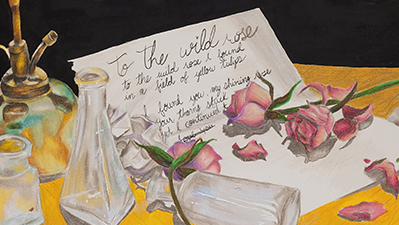 To The wild rose
to the wild rose I found
in a field of yellow tulips
I found you my shining rose
your thorns
yet I continued